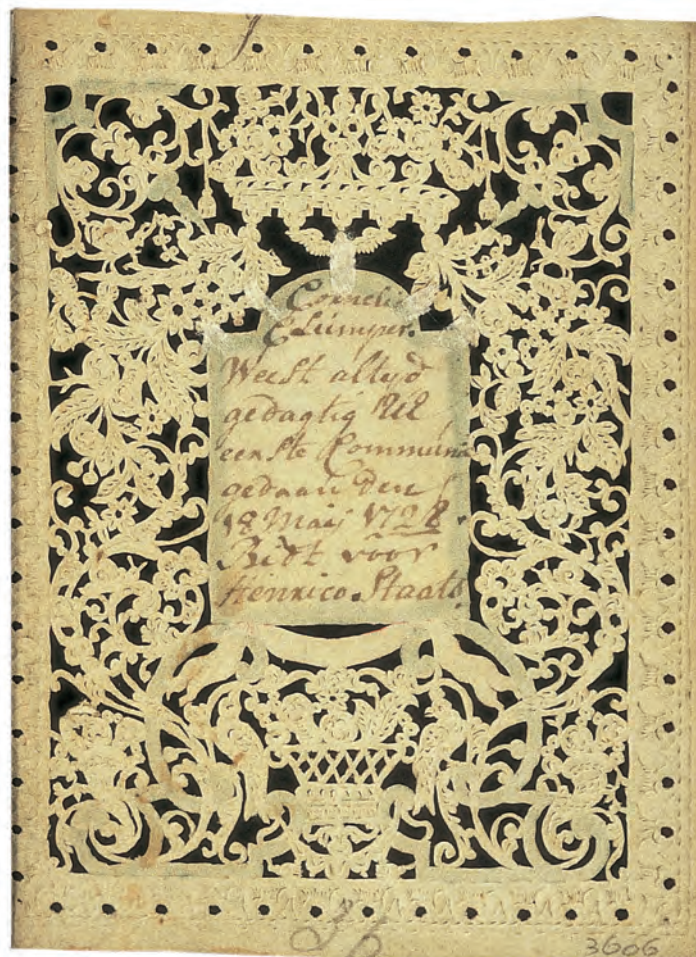 Cornelis
Clümper.
Weest altyd
gedagtig UE
eerste Commun
gedaan den
18 Maij 1728.
Bidt voor
Henrico Staats.
36
3606